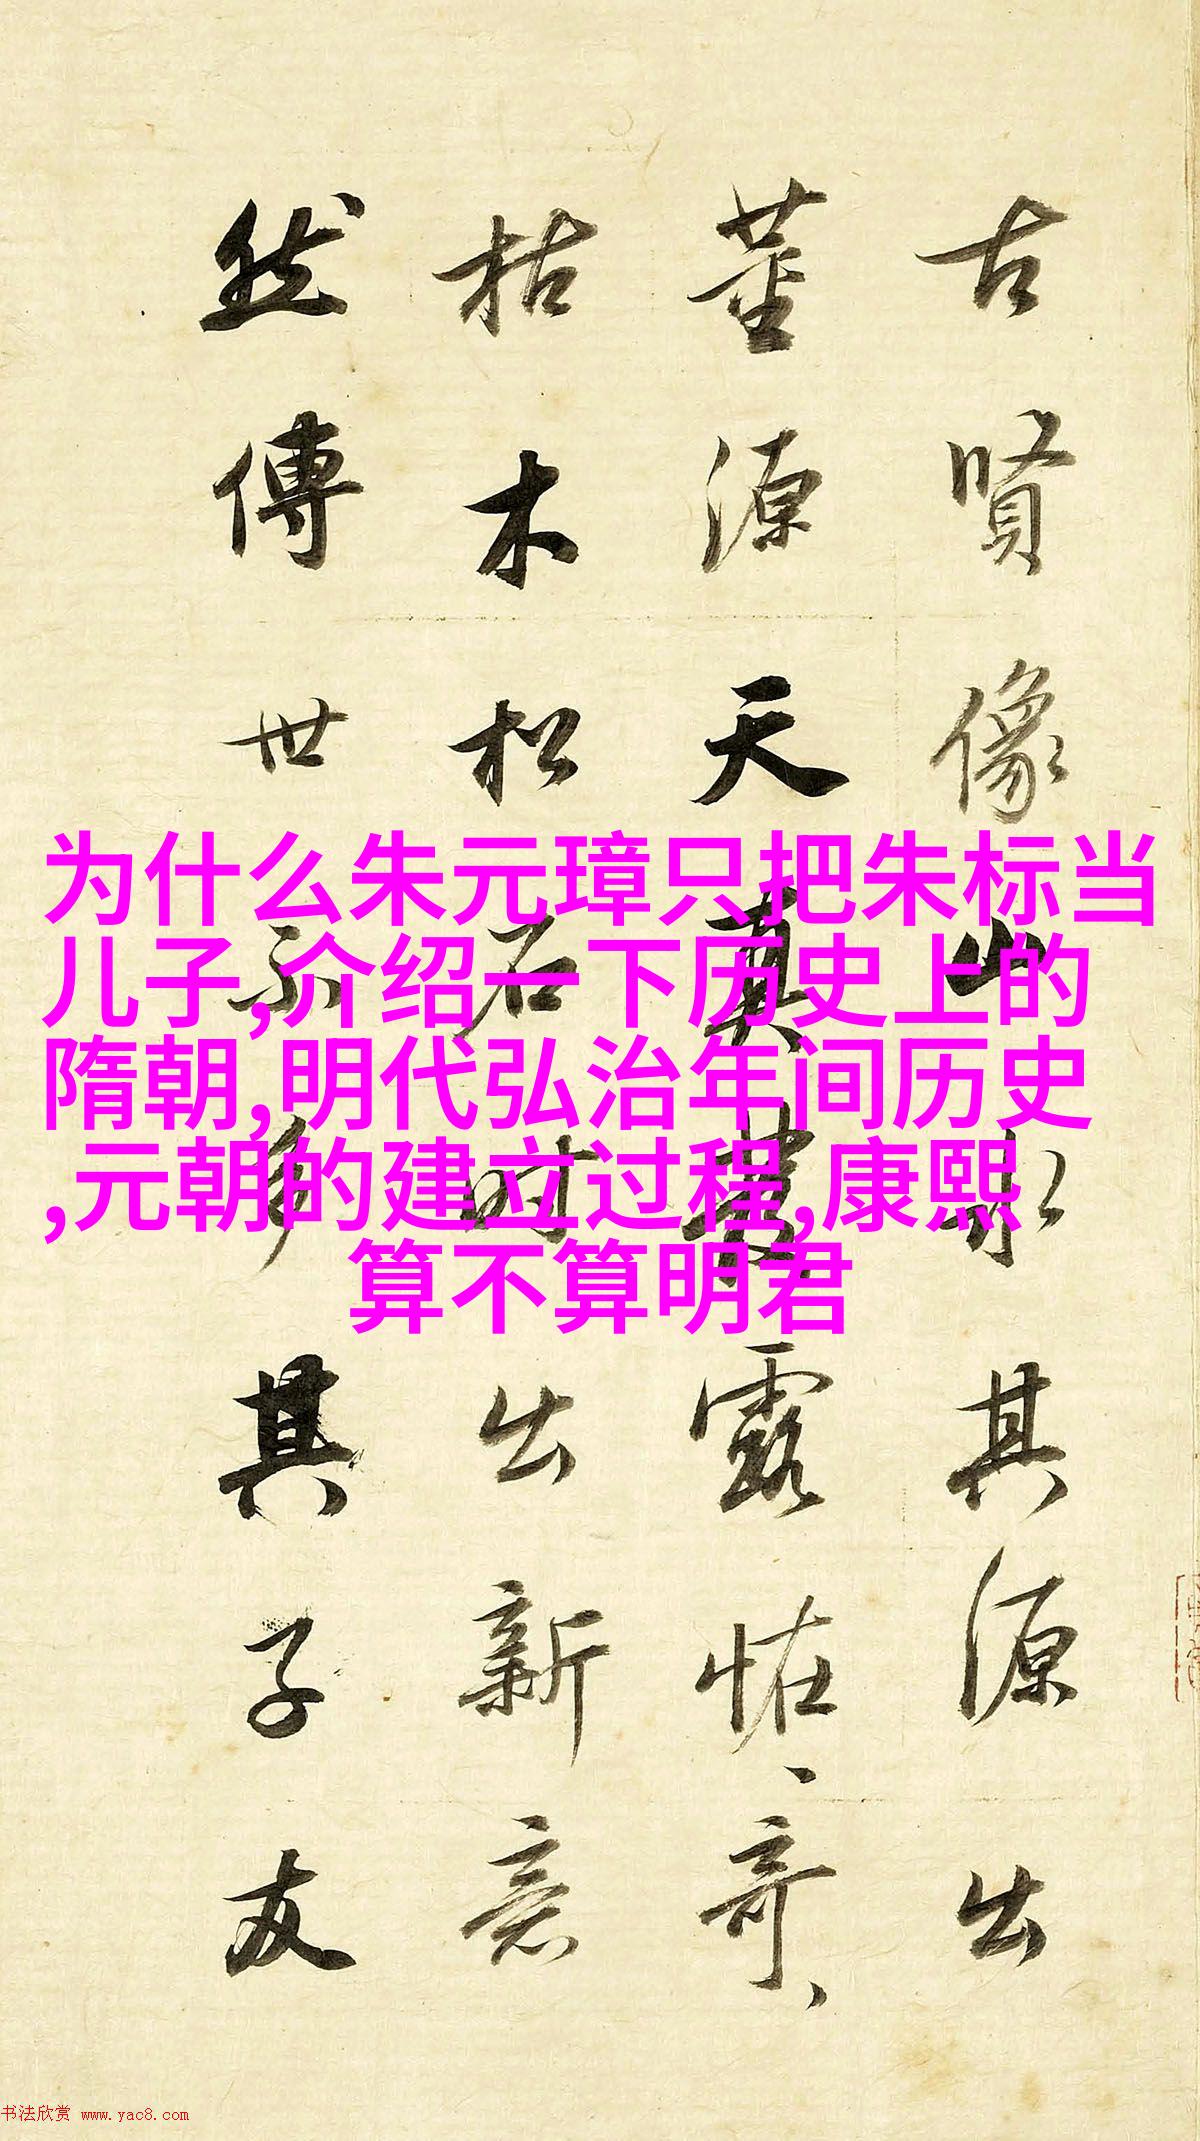 古賢像山水其源出
董源天真叢露怪怪奇奇
枯木松石時出新意
然傳世不多其子友
为什么朱元璋只把朱标当
儿子,介绍一下历史上的
隋朝,明代弘治年间历史
,元朝的建立过程,康熙
算不算明君
书法欣赏 www.yac8.com